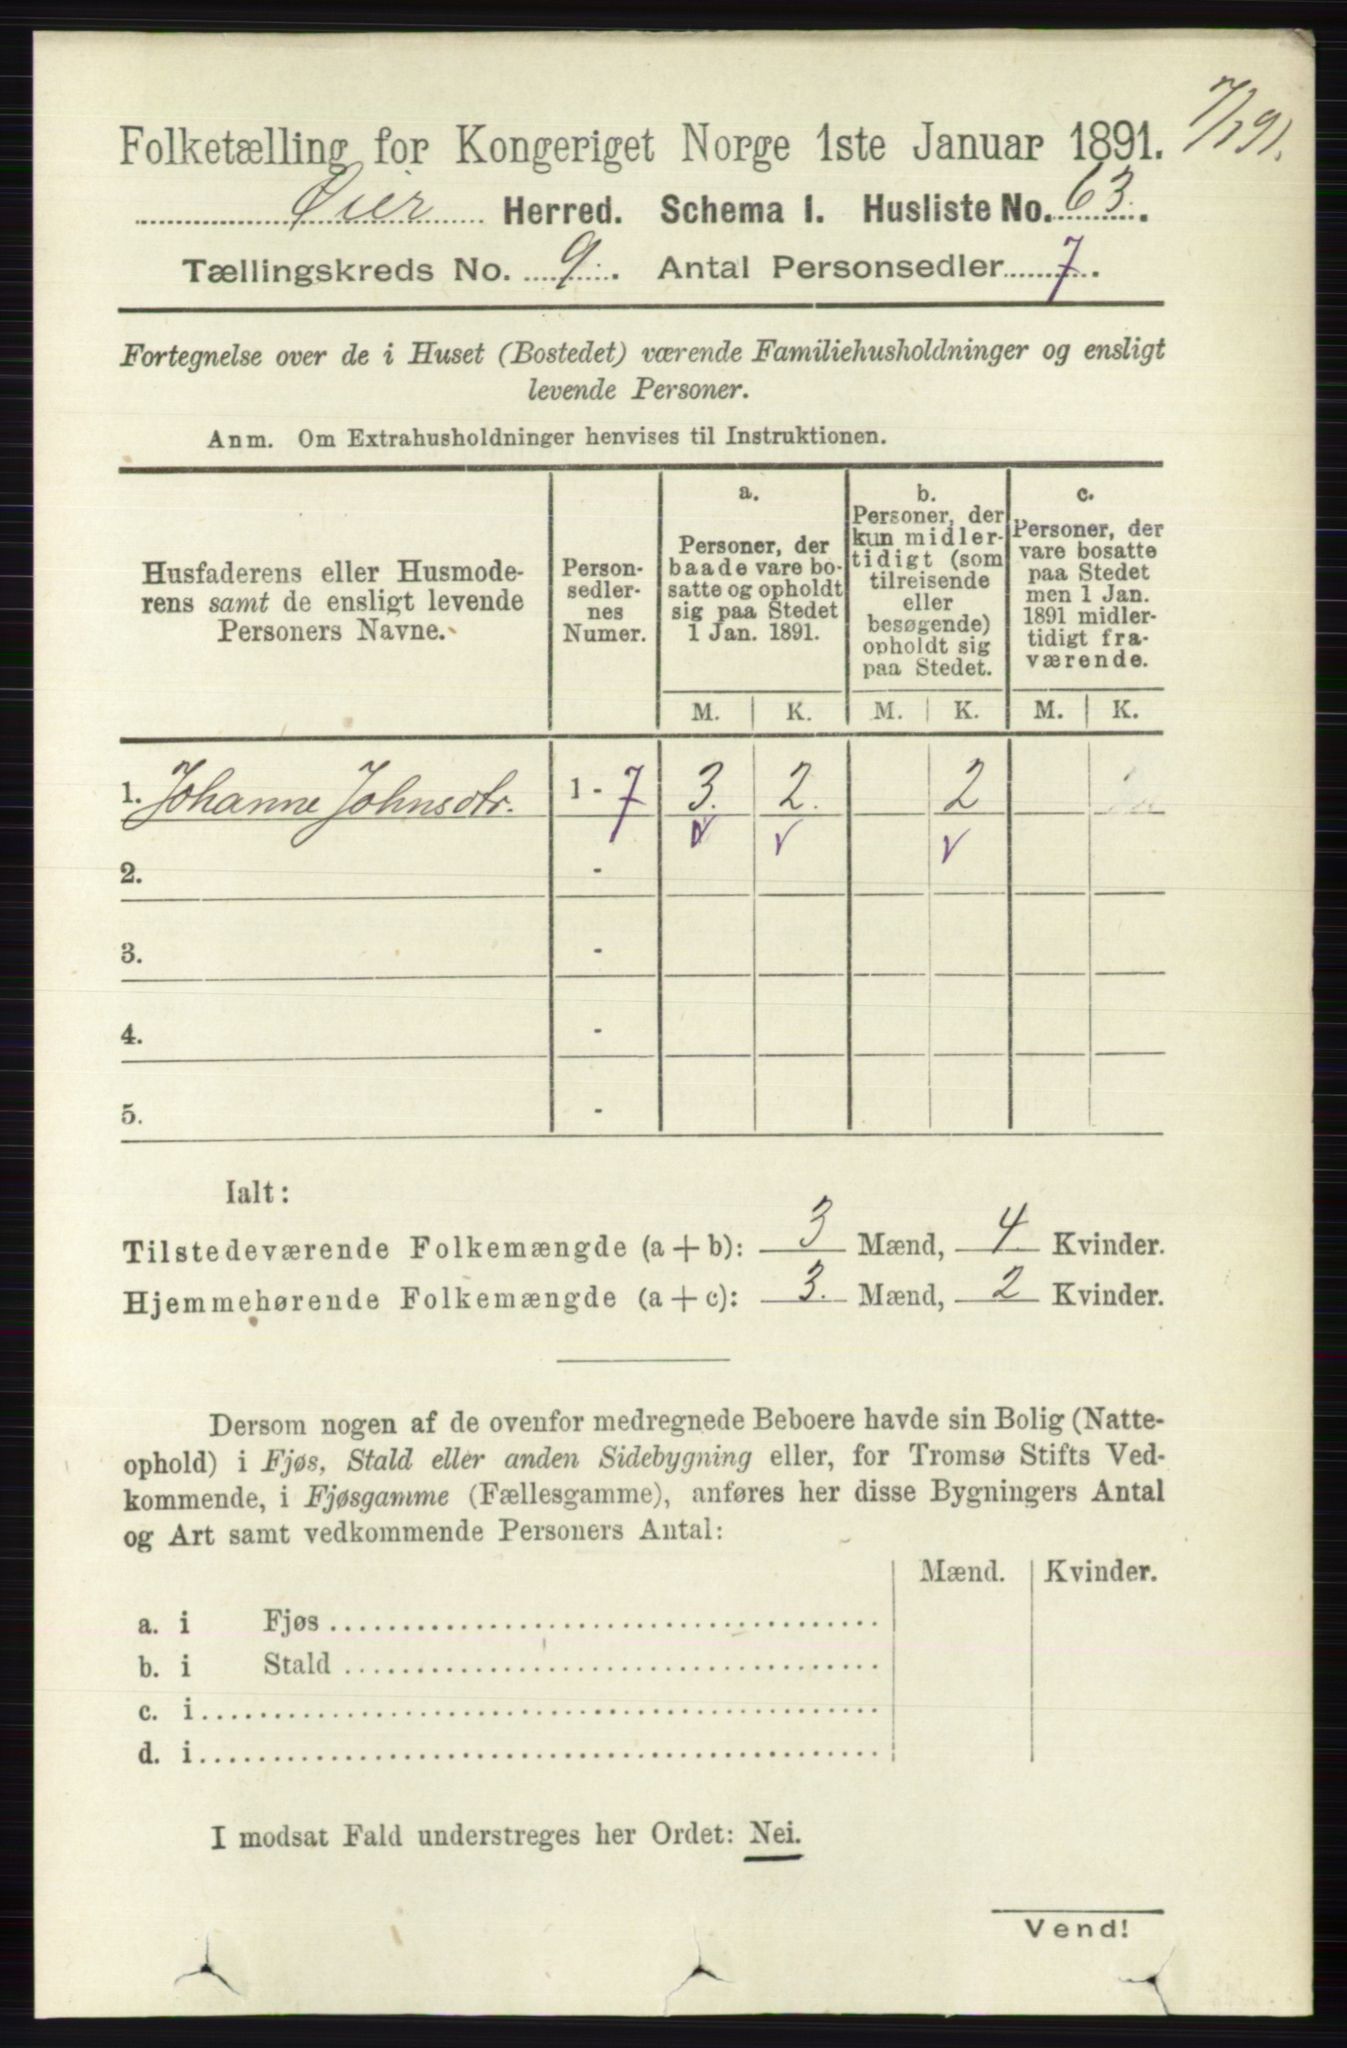 7/1 91.
Folketælling for Kongeriget Norge 1ste Januar 1891.
Øier Herred. Schema I. Husliste No. 63.
Tællingskreds No. 9. Antal Personsedler 7.
Fortegnelse over de i Huset (Bostedet) værende Familiehusholdninger og ensligt
levende Personer.
Anm. Om Extrahusholdninger henvises til Instruktionen.
Husfaderens eller Husmode-
rens samt de ensligt levende
Personers Navne.
Person-
sedler-
nes
Numer.
a.
Personer, der
baade vare bo-
satte og opholdt
sig paa Stedet
1 Jan. 1891.
b.
Personer, der
kun midler-
tidigt (som
tilreisende
eller
besøgende)
opholdt sig
paa Stedet.
c.
Personer, der
vare bosatte
paa Stedet
men 1 Jan.
1891 midler-
tidigt fra-
værende.
M. K. M. K. M. K.
1. Johanne Johnsdtr. 1 - 7 3. 2. 2
2. -
3. -
4. -
5. -
Ialt:
Tilstedeværende Folkemængde (a + b): 3 Mænd, 4 Kvinder.
Hjemmehørende Folkemængde (a + c): 3. Mænd, 2 Kvinder.
Dersom nogen af de ovenfor medregnede Beboere havde sin Bolig (Natte-
ophold) i Fjøs, Stald eller anden Sidebygning eller, for Tromsø Stifts Ved-
kommende, i Fjøsgamme (Fællesgamme), anføres her disse Bygningers Antal
og Art samt vedkommende Personers Antal:
Mænd. Kvinder.
a. i Fjøs
b. i Stald
c. i
d. i
I modsat Fald understreges her Ordet: Nei.
Vend!